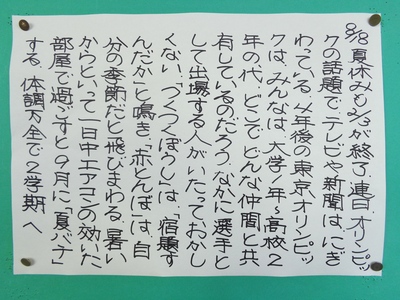 8/18 夏休みも2/3が終了.連日,オリンピッ
クの話題で,テレビや新聞は,にぎ
わっている.4年後の東京,オリンピッ
クは,みんなは,大学1年~高校2
年の代.どこで,どんな仲間と共
有しているのだろう.なかに選手と
して出場する人がいたっておかし
くない.「つくつくぼうし」は,「宿題す
んだか」と鳴き,「赤とんぼ」は,自
分の季節だと飛びまわる.暑い
からといって一日中エアコンの効いた
部屋で過ごすと9月に,「夏バテ」
する.体調万全で2学期へ